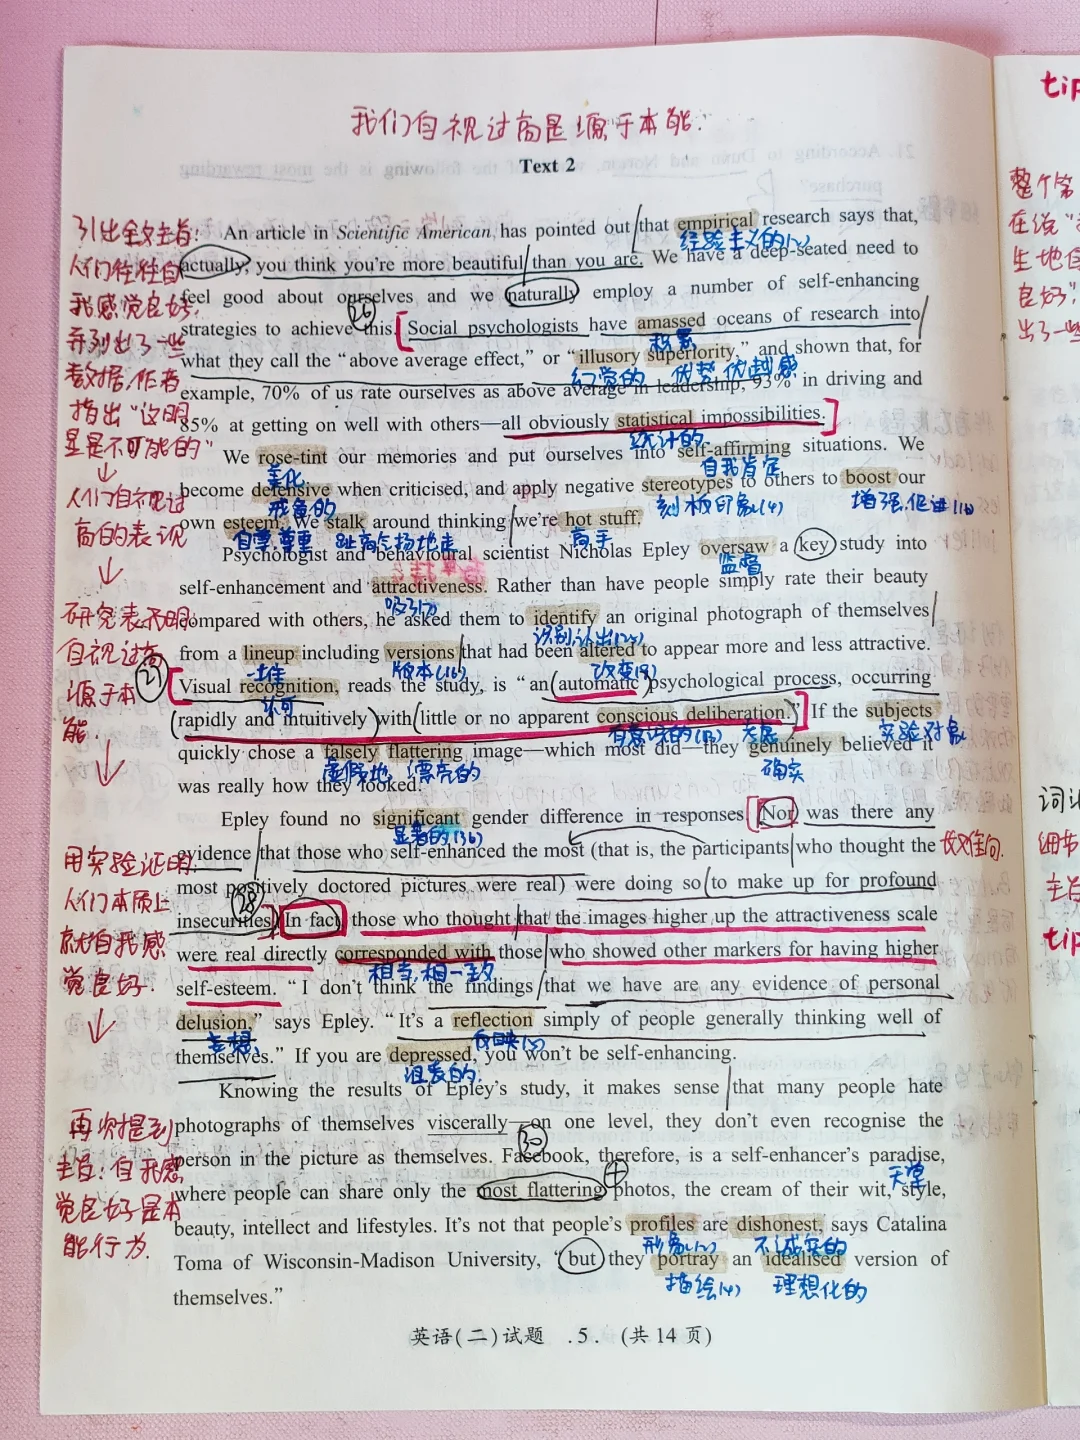 我们自视过高是源于本能.
Text 2
引出全文主旨:
人们往往自
我感觉良好,
并列出了一些
数据,作者
指出“这明
显是不可能的”
↓
人们自视过
高的表现
↓
研究表明
自视过高
源于本
能.
↓
用实验证明,
人们本质上
就自我感
觉良好.
↓
再次提到
主旨:自我感
觉良好是本
能行为.
An article in Scientific American has pointed out that empirical research says that,
经验主义的(2)
actually, you think you're more beautiful than you are. We have a deep-seated need to
feel good about ourselves and we naturally employ a number of self-enhancing
26
strategies to achieve this. Social psychologists have amassed oceans of research into
积累
what they call the “above average effect,” or “illusory superiority,” and shown that, for
幻觉的 优势 优越感
example, 70% of us rate ourselves as above average in leadership, 93% in driving and
85% at getting on well with others—all obviously statistical impossibilities.
统计的
We rose-tint our memories and put ourselves into self-affirming situations. We
美化 自我肯定
become defensive when criticised, and apply negative stereotypes to others to boost our
戒备的 刻板印象(4) 增强,促进(10)
own esteem. We stalk around thinking we're hot stuff.
自尊,尊重 趾高气扬地走 高手
Psychologist and behavioural scientist Nicholas Epley oversaw a key study into
监督
self-enhancement and attractiveness. Rather than have people simply rate their beauty
吸引力
compared with others, he asked them to identify an original photograph of themselves
识别,认出(24)
from a lineup including versions that had been altered to appear more and less attractive.
一排 版本(16) 改变(9)
27
Visual recognition, reads the study, is “an automatic psychological process, occurring
认可
rapidly and intuitively with little or no apparent conscious deliberation.” If the subjects
有意识的(13) 实验对象
quickly chose a falsely flattering image—which most did—they genuinely believed it
虚假地 漂亮的 确实
was really how they looked.
Epley found no significant gender difference in responses. Nor was there any
显著的(36)
evidence that those who self-enhanced the most (that is, the participants who thought the
most positively doctored pictures were real) were doing so to make up for profound
28
insecurities. In fact, those who thought that the images higher up the attractiveness scale
were real directly corresponded with those who showed other markers for having higher
相当,相一致
self-esteem. “I don't think the findings that we have are any evidence of personal
delusion,” says Epley. “It's a reflection simply of people generally thinking well of
妄想 反映(5)
themselves.” If you are depressed, you won't be self-enhancing.
沮丧的.
Knowing the results of Epley's study, it makes sense that many people hate
photographs of themselves viscerally—on one level, they don't even recognise the
30
person in the picture as themselves. Facebook, therefore, is a self-enhancer's paradise,
天堂
where people can share only the most flattering photos, the cream of their wit, style,
beauty, intellect and lifestyles. It's not that people's profiles are dishonest, says Catalina
形象(2) 不诚实的
Toma of Wisconsin-Madison University, “but they portray an idealised version of
描绘(4) 理想化的
themselves.”
英语(二)试题 .5. (共14页)
tip
整个第
在说“
生地自
良好”
出了一些
词汇
细节
主旨
tip